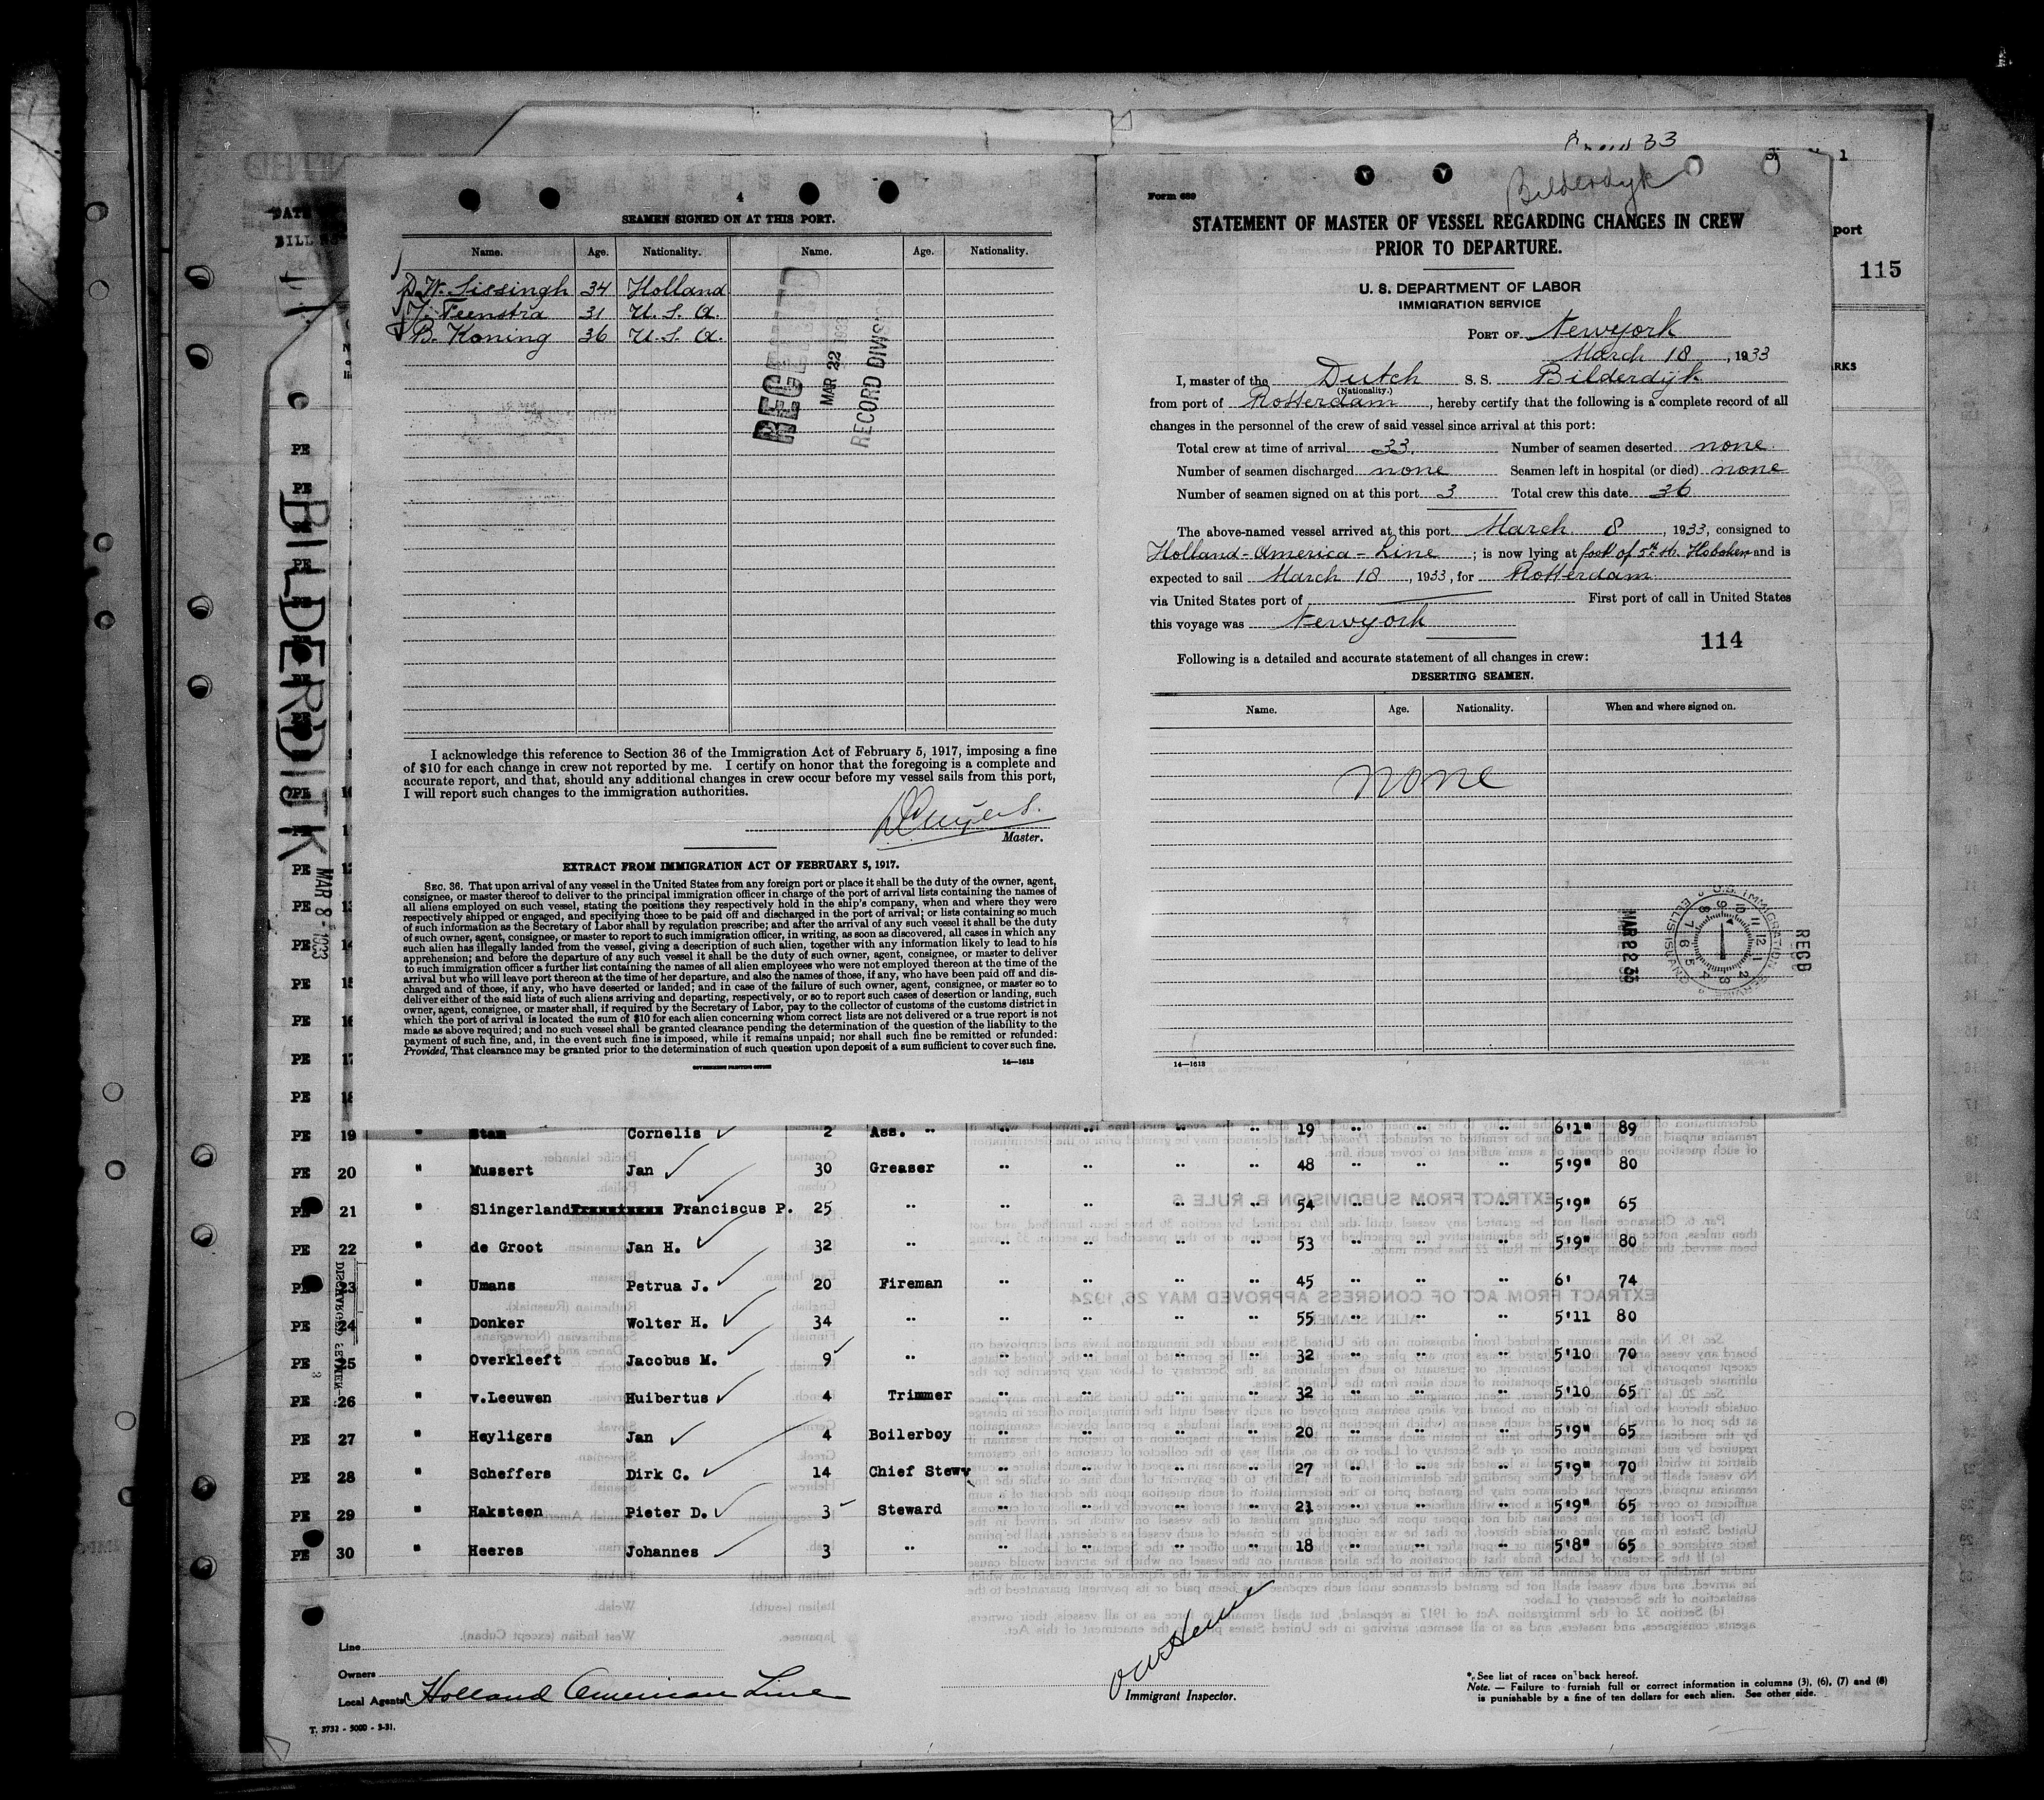 Crew 33
4
SEAMEN SIGNED ON AT THIS PORT.
Name. Age. Nationality. Name. Age. Nationality.
D. W. Sissingh 34 Holland
Feenstra 31 U. S. A.
B. Koning 36 U. S. A.
RECEIVED
MAR 22 1933
RECORD DIVIS
I acknowledge this reference to Section 36 of the Immigration Act of February 5, 1917, imposing a fine
of $10 for each change in crew not reported by me. I certify on honor that the foregoing is a complete and
accurate report, and that, should any additional changes in crew occur before my vessel sails from this port,
I will report such changes to the immigration authorities.
Master.
EXTRACT FROM IMMIGRATION ACT OF FEBRUARY 5, 1917.
SEC. 36. That upon arrival of any vessel in the United States from any foreign port or place it shall be the duty of the owner, agent,
consignee, or master thereof to deliver to the principal immigration officer in charge of the port of arrival lists containing the names of
all aliens employed on such vessel, stating the positions they respectively hold in the ship's company, when and where they were
respectively shipped or engaged, and specifying those to be paid off and discharged in the port of arrival; or lists containing so much
of such information as the Secretary of Labor shall by regulation prescribe; and after the arrival of any such vessel it shall be the duty
of such owner, agent, consignee, or master to report to such immigration officer, in writing, as soon as discovered, all cases in which any
such alien has illegally landed from the vessel, giving a description of such alien, together with any information likely to lead to his
apprehension; and before the departure of any such vessel it shall be the duty of such owner, agent, consignee, or master to deliver
to such immigration officer a further list containing the names of all alien employees who were not employed thereon at the time of the
arrival but who will leave port thereon at the time of her departure, and also the names of those, if any, who have been paid off and dis-
charged and of those, if any, who have deserted or landed; and in case of the failure of such owner, agent, consignee, or master so to
deliver either of the said lists of such aliens arriving and departing, respectively, or so to report such cases of desertion or landing, such
owner, agent, consignee, or master shall, if required by the Secretary of Labor, pay to the collector of customs of the customs district in
which the port of arrival is located the sum of $10 for each alien concerning whom correct lists are not delivered or a true report is not
made as above required; and no such vessel shall be granted clearance pending the determination of the question of the liability to the
payment of such fine, and, in the event such fine is imposed, while it remains unpaid; nor shall such fine be remitted or refunded:
Provided, That clearance may be granted prior to the determination of such question upon deposit of a sum sufficient to cover such fine.
GOVERNMENT PRINTING OFFICE 14—1613
Form 689
Bilderdyk
STATEMENT OF MASTER OF VESSEL REGARDING CHANGES IN CREW
PRIOR TO DEPARTURE.
U. S. DEPARTMENT OF LABOR
IMMIGRATION SERVICE
PORT OF Newyork
March 18, 1933
I, master of the Dutch S. S. Bilderdijk
(Nationality.)
from port of Rotterdam, hereby certify that the following is a complete record of all
changes in the personnel of the crew of said vessel since arrival at this port:
Total crew at time of arrival 33. Number of seamen deserted none.
Number of seamen discharged none Seamen left in hospital (or died) none
Number of seamen signed on at this port 3 Total crew this date 36
The above-named vessel arrived at this port March 8, 1933, consigned to
Holland-America-Line; is now lying at foot of 5th str. Hoboken and is
expected to sail March 18, 1933, for Rotterdam
via United States port of First port of call in United States
this voyage was Newyork
114
Following is a detailed and accurate statement of all changes in crew:
DESERTING SEAMEN.
Name. Age. Nationality. When and where signed on.
none
MAR 22 33
U.S. IMMIGRATION SERVICE ELLIS ISLAND
REC'D
14—1613
port
115
RKS
DATE
BILL NO
BILDERDIJK
MAR 8 - 1933
DISCHARGED SEAMEN
PE 12
PE 13
PE 14
PE 15
PE 16
PE 17
PE 18
PE 19 " Stam Cornelis 2 Ass. " " " " " 19 " " " 6'1" 89
PE 20 " Mussert Jan 30 Greaser " " " " 48 " " " 5'9" 80
PE 21 " Slingerland Franciscus P. 25 " " " " " 54 " " " 5'9" 65
PE 22 " de Groot Jan H. 32 " " " " " 53 " " " 5'9" 80
PE 23 " Umans Petrua J. 20 Fireman " " " " 45 " " " 6' 74
PE 24 " Donker Wolter H. 34 " " " " " 55 " " " 5'11 80
PE 25 " Overkleeft Jacobus M. 9 " " " " " 32 " " " 5'10 70
PE 26 " v.Leeuwen Huibertus 4 Trimmer " " " " 32 " " " 5'10 65
PE 27 " Heyligers Jan 4 Boilerboy " " " " 20 " " " 5'9" 65
PE 28 " Scheffers Dirk C. 14 Chief Stew " " " " 27 " " " 5'9" 70
PE 29 " Haksteen Pieter D. 3 Steward " " " " 21 " " " 5'9" 65
PE 30 " Heeres Johannes 3 " " " " " 18 " " " 5'8" 65
Line
Owners
Local Agents Holland American Line
T. 3732 - 5000 - 3-31.
Immigrant Inspector.
*. See list of races on back hereof.
Note. — Failure to furnish full or correct information in columns (3), (6), (7) and (8)
is punishable by a fine of ten dollars for each alien. See other side.